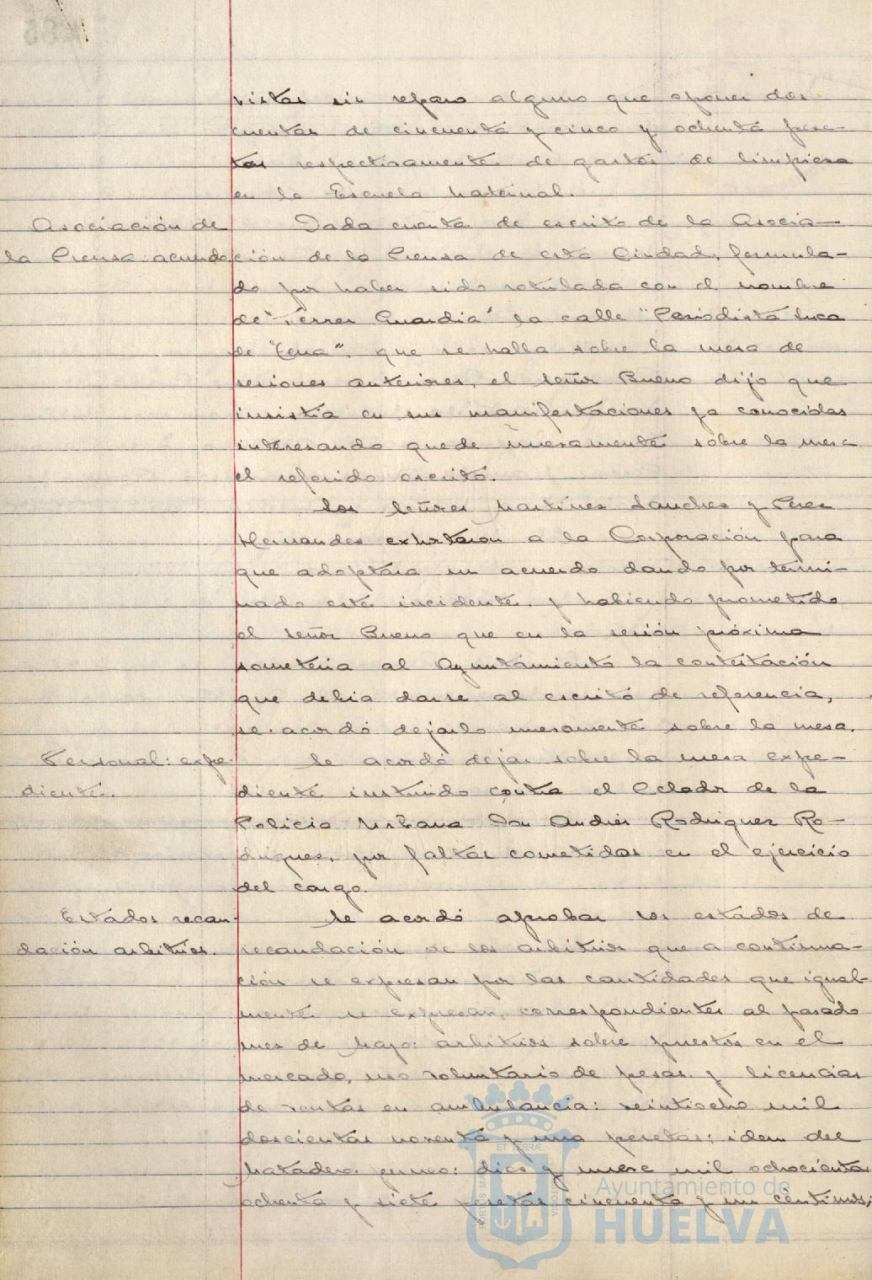 vistas sin reparo alguno que oponer dos
cuentas de cincuenta y cinco y ochenta pese-
tas respectivamente de gastos de limpieza
en la Escuela Maternal.
Asociación de
la Prensa: acuerdo
Dada cuenta de escrito de la Asocia-
ción de la Prensa de esta Ciudad, formula-
do por haber sido rotulada con el nombre
de "Ferrer Guardia" la calle "Periodista Luca
de Tena", que se halla sobre la mesa de
sesiones anteriores, el señor Bueno dijo que
insistía en sus manifestaciones ya conocidas
interesando quede nuevamente sobre la mesa
el referido escrito.
Los señores Martínez Sanchez y Perez
Hernandez exhortaron a la Corporación para
que adoptara un acuerdo dando por termi-
nado este incidente, y habiendo prometido
el señor Bueno que en la sesión próxima
sometería al Ayuntamiento la contestación
que debia darse al escrito de referencia,
se acordó dejarlo nuevamente sobre la mesa.
Personal: expe-
diente.
Se acordó dejar sobre la mesa expe-
diente instruido contra el Celador de la
Policia Urbana Don Andrés Rodriguez Ro-
driguez, por faltas cometidas en el ejercicio
del cargo.
Estados recau-
dación arbitrios.
Se acordó aprobar los estados de
recaudación de los arbitrios que a continua-
ción se expresan por las cantidades que igual-
mente se expresan, correspondientes al pasado
mes de Mayo: arbitrios sobre puestos en el
mercado, uso voluntario de pesas y licencias
de ventas en ambulancia: veintiocho mil
doscientas noventa y una pesetas; idem del
Matadero: diez y nueve mil ochocientas
ochenta y siete pesetas cincuenta y un céntimos;
Ayuntamiento de
HUELVA